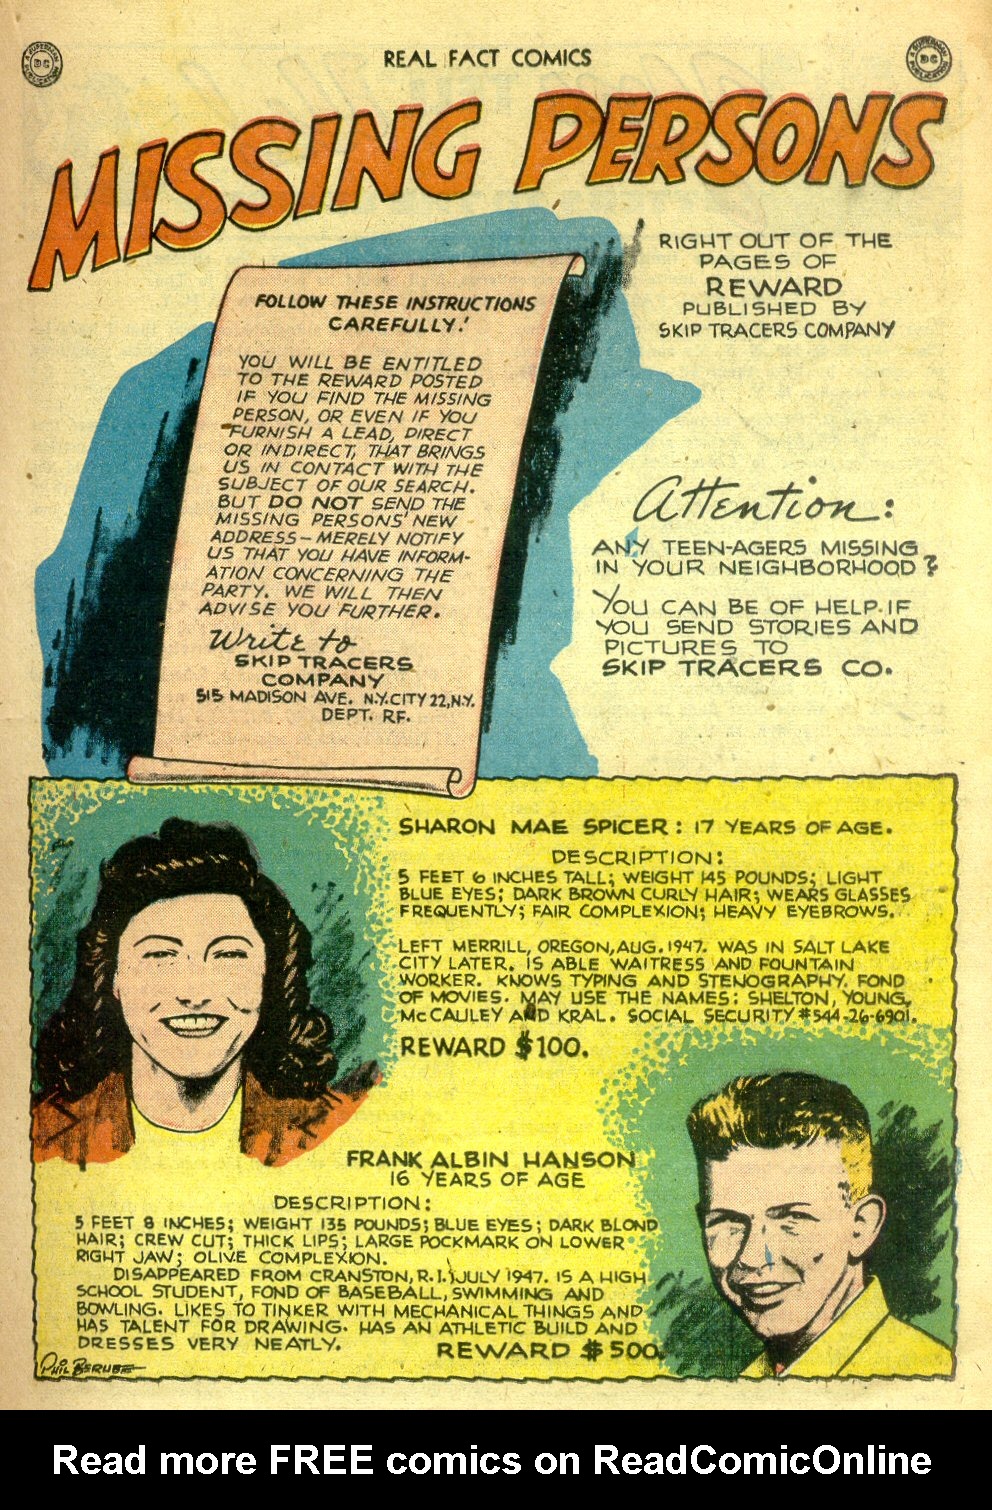 REAL FACT COMICS
A SUPERMAN DC PUBLICATION
A SUPERMAN DC PUBLICATION
MISSING PERSONS
RIGHT OUT OF THE
PAGES OF
REWARD
PUBLISHED BY
SKIP TRACERS COMPANY
FOLLOW THESE INSTRUCTIONS
CAREFULLY!
YOU WILL BE ENTITLED
TO THE REWARD POSTED
IF YOU FIND THE MISSING
PERSON, OR EVEN IF YOU
FURNISH A LEAD, DIRECT
OR INDIRECT, THAT BRINGS
US IN CONTACT WITH THE
SUBJECT OF OUR SEARCH.
BUT DO NOT SEND THE
MISSING PERSONS' NEW
ADDRESS - MERELY NOTIFY
US THAT YOU HAVE INFORM-
ATION CONCERNING THE
PARTY. WE WILL THEN
ADVISE YOU FURTHER.
Write to
SKIP TRACERS
COMPANY
515 MADISON AVE. N.Y. CITY 22, N.Y.
DEPT. RF.
Attention:
ANY TEEN-AGERS MISSING
IN YOUR NEIGHBORHOOD?
YOU CAN BE OF HELP IF
YOU SEND STORIES AND
PICTURES TO
SKIP TRACERS CO.
SHARON MAE SPICER: 17 YEARS OF AGE.
DESCRIPTION:
5 FEET 6 INCHES TALL; WEIGHT 145 POUNDS; LIGHT
BLUE EYES; DARK BROWN CURLY HAIR; WEARS GLASSES
FREQUENTLY; FAIR COMPLEXION; HEAVY EYEBROWS.
LEFT MERRILL, OREGON, AUG. 1947. WAS IN SALT LAKE
CITY LATER. IS ABLE WAITRESS AND FOUNTAIN
WORKER. KNOWS TYPING AND STENOGRAPHY. FOND
OF MOVIES. MAY USE THE NAMES: SHELTON, YOUNG,
McCAULEY AND KRAL. SOCIAL SECURITY #544-26-6901.
REWARD $100.
FRANK ALBIN HANSON
16 YEARS OF AGE
DESCRIPTION:
5 FEET 8 INCHES; WEIGHT 135 POUNDS; BLUE EYES; DARK BLOND
HAIR; CREW CUT; THICK LIPS; LARGE POCKMARK ON LOWER
RIGHT JAW; OLIVE COMPLEXION.
DISAPPEARED FROM CRANSTON, R.I. JULY 1947. IS A HIGH
SCHOOL STUDENT, FOND OF BASEBALL, SWIMMING AND
BOWLING. LIKES TO TINKER WITH MECHANICAL THINGS AND
HAS TALENT FOR DRAWING. HAS AN ATHLETIC BUILD AND
DRESSES VERY NEATLY.
REWARD $500.
PHIL BERUBE
Read more FREE comics on ReadComicOnline